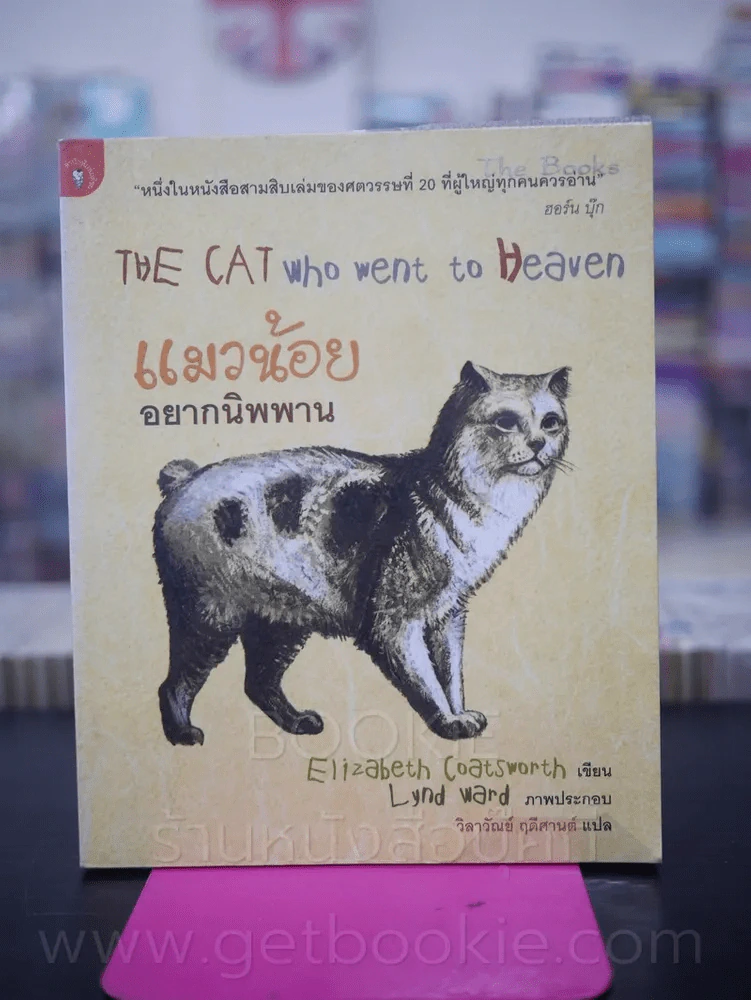 The Books
"หนึ่งในหนังสือสามสิบเล่มของศตวรรษที่ 20 ที่ผู้ใหญ่ทุกคนควรอ่าน"
ฮอร์น บุ๊ก
THE CAT who went to Heaven
แมวน้อย
อยากนิพพาน
BOOKIE
Elizabeth Coatsworth เขียน
Lynd Ward ภาพประกอบ
วิลาวัณย์ ฤดีศานต์ แปล
ร้านหนังสือบุ๊คกี้
www.getbookie.com